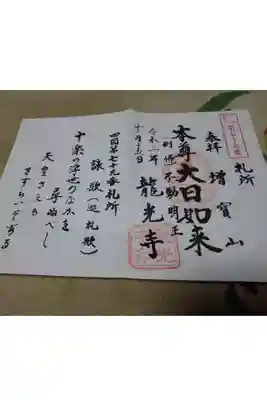 札所
増寳山
奉拝
本尊大日如来
別傳不動明王
令和二年
十月十三日
龍光寺
四国第七十九番札所
詠歌(巡礼歌)
十楽の浮世のなかを
尋ぬべし
天皇さえも
さすらいぞある